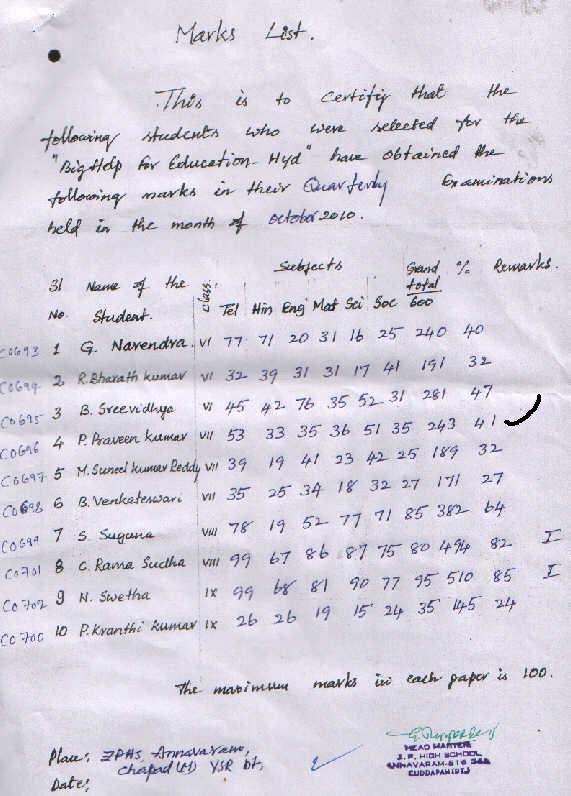 Marks List.
This is to certify that the
following students who were selected for the
"Big Help For Education- Hyd" have obtained the
following marks in their Quarterly Examinations
held in the month of october 2010.
Sl Name of the Class. Subjects Grand % Remarks.
No. Student. Tel Hin Eng Mat Sci Soc total 600
C0693 1 G. Narendra. VI 77 71 20 31 16 25 240 40
C0694 2 R. Bharath kumar VI 32 39 31 31 17 41 191 32
C0695 3 B. Sreevidhya VI 45 42 76 35 52 31 281 47
C0696 4 P. Praveen kumar VII 53 33 35 36 51 35 243 41
C0697 5 M. Suneel kumar Reddy VII 39 19 41 23 42 25 189 32
C0698 6 B. Venkateswari VII 35 25 34 18 32 27 171 27
C0699 7 S. Suguna VIII 78 19 52 77 71 85 382 64
C0701 8 C. Rama Sudha VIII 99 67 86 87 75 80 494 82 I
C0702 9 N. Swetha IX 99 68 81 90 77 95 510 85 I
C0700 10 P. Kranthi kumar IX 26 26 19 15 24 35 145 24
The maximum marks in each paper is 100.
Place: ZPHS Annavaram,
Chapad YSR Dt,
Date:
HEAD MASTER
Z.P. HIGH SCHOOL
ANNAVARAM-516
CUDDAPAH (DT.)